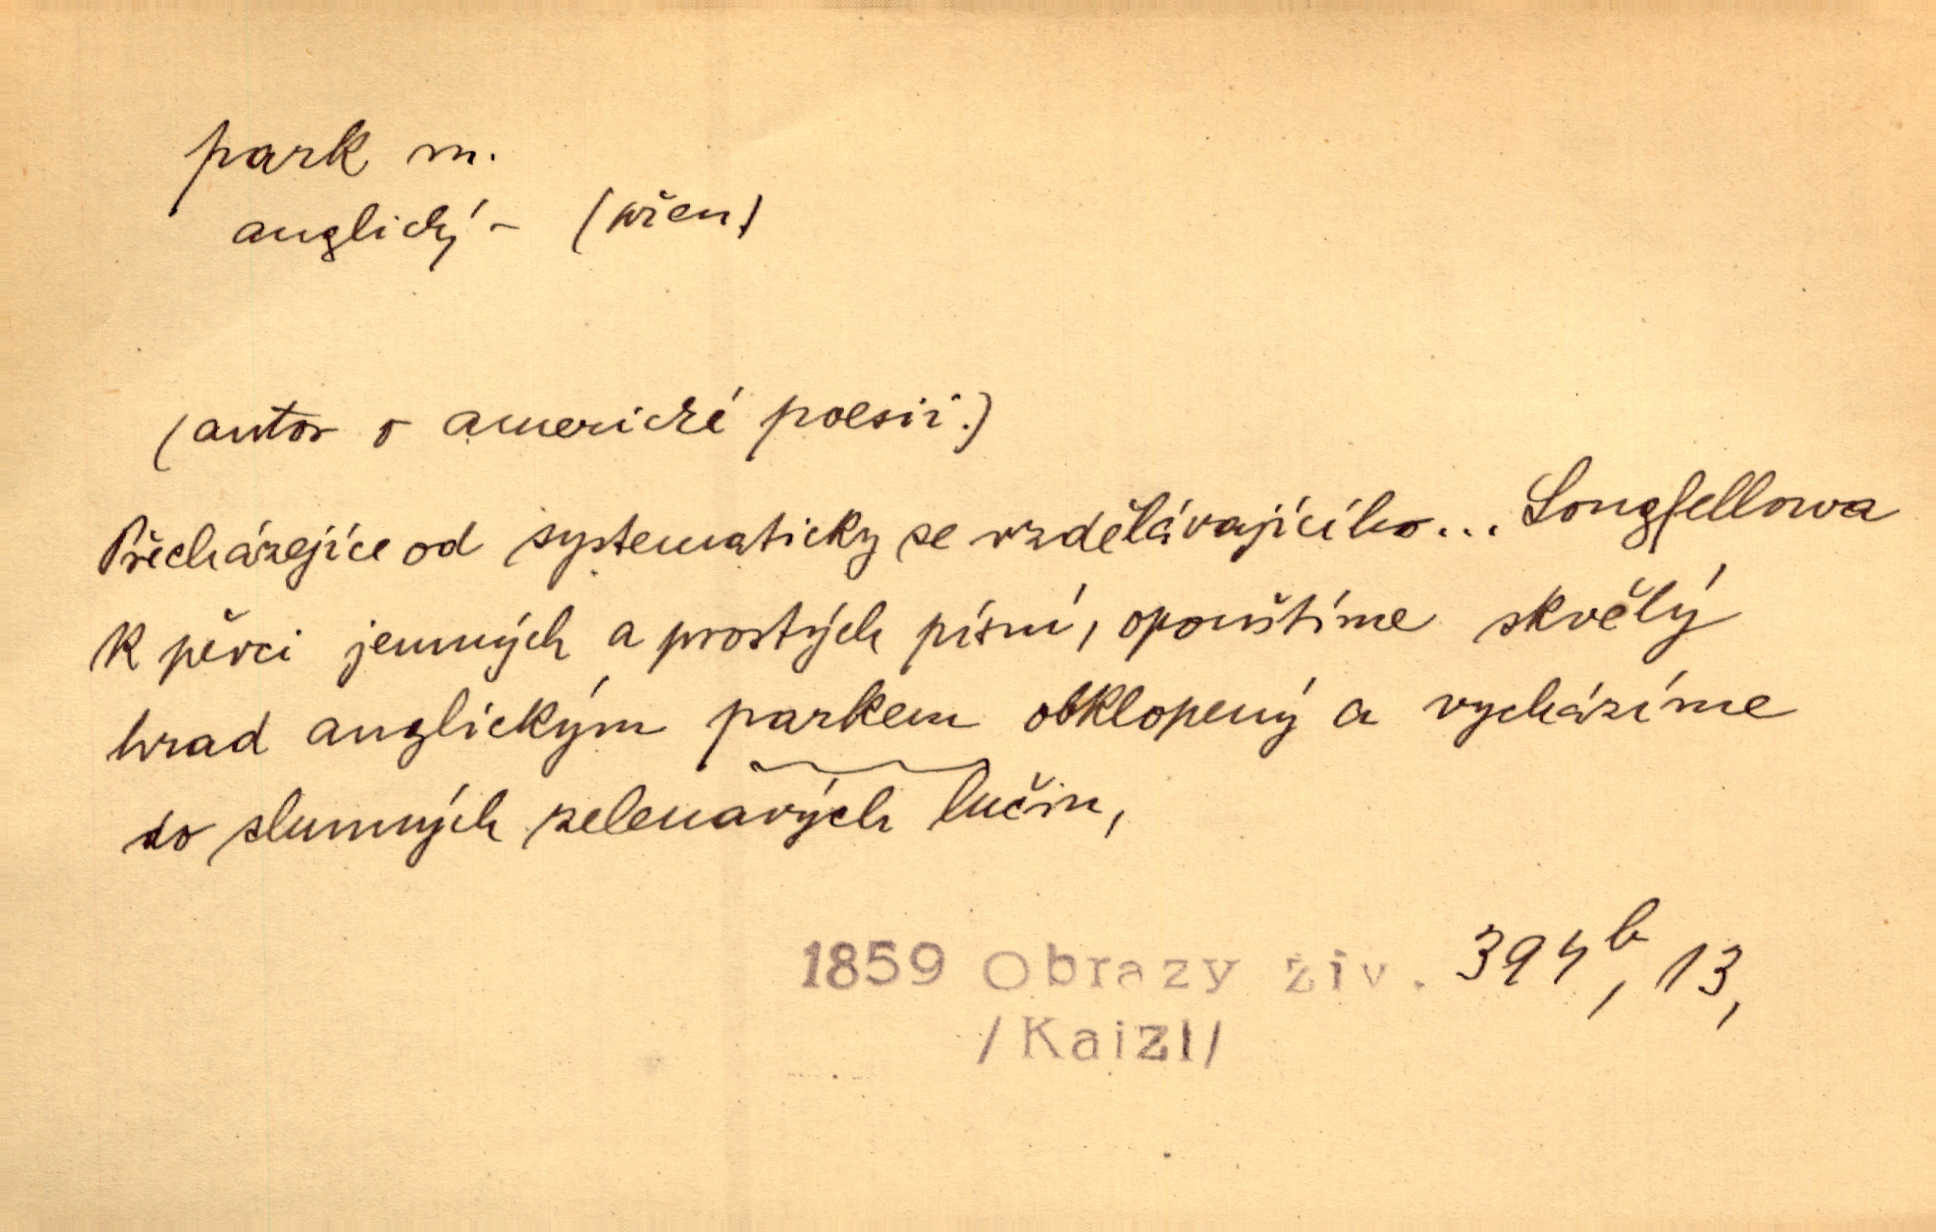 park m.
anglický – (přen)
(autor o americké poesii.)
Přecházejíce od systematicky se vzdělávajícího... Longfellowa
k pěvci jemných a prostých písní, opouštíme skvělý
hrad anglickým parkem obklopený a vycházíme
do slunných zelenavých lučin,
1859 Obrazy živ. 394b, 13,
/Kaizl/